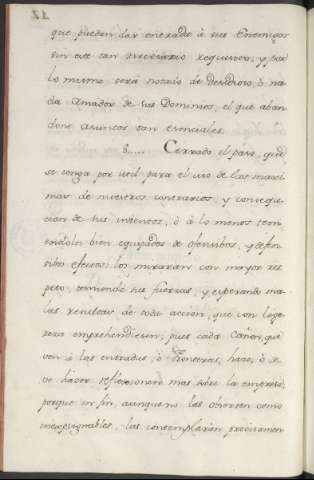 que pueden dar entrada à sus Enemigos
sin este tan necesario requisito; y por
lo mismo será notado de desidioso, ò na-
da Amador de sus Dominios, el que aban-
done asuntos tan esenciales.
8..... Cerrado el paso, que
se tenga por util para el uso de las maxi-
mas de nuestros contrarios, y consequ-
cion de sus intentos, ò à lo menos teni-
endolo bien equipados de ofensibos, y defen-
sibos efectos; los miraran con mayor res-
peto, temiendo sus fuerzas, y esperando ma-
las resultas de toda accion, que con lige-
reza emprehendiesen; pues cada Cañon, que
ven à las entradas, ò Fronteras, hace, ò de-
ve hacer reflexionen mas sobre la empresa;
porque en fin, aunque no las observen como
inexpugnables, las contemplarán precisamen